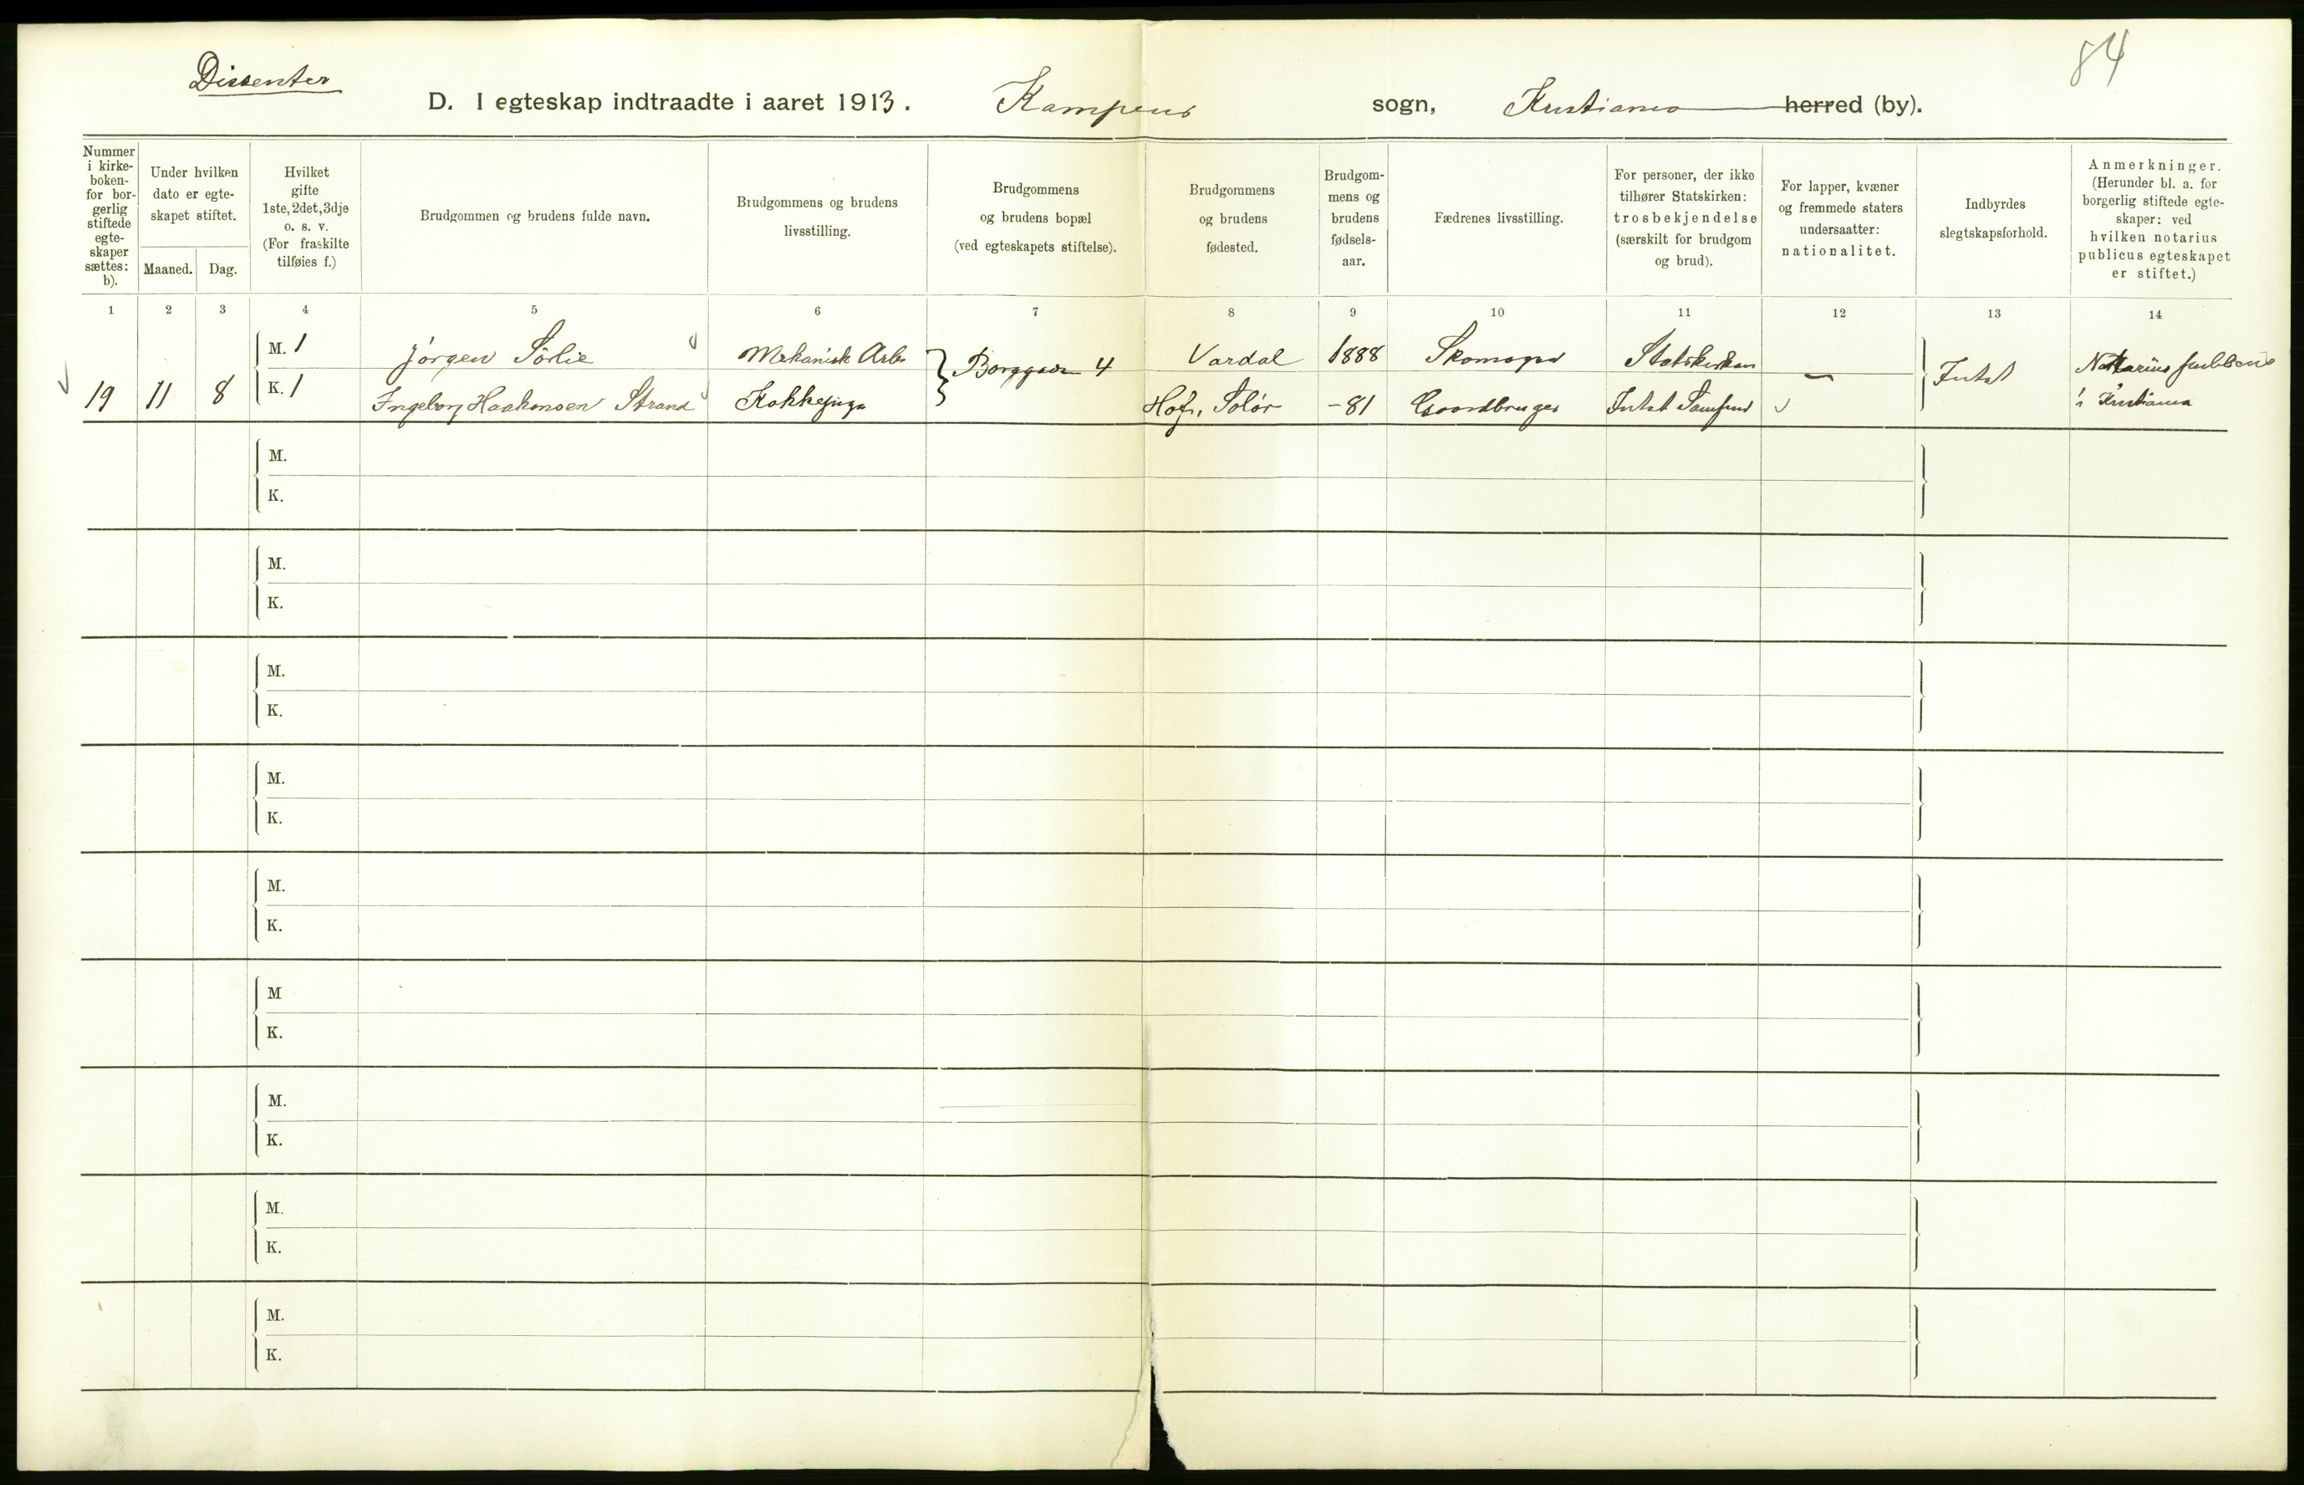 Dissenter
84
D. I egteskap indtraadte i aaret 1913. Kampens sogn, Kristiania herred (by).
Nummer i kirke-boken- for bor-gerlig stiftede egte-skaper sættes: b).
Under hvilken dato er egte-skapet stiftet.
Maaned. Dag.
Hvilket gifte 1ste, 2det, 3dje o. s. v. (For fraskilte tilføies f.)
Brudgommen og brudens fulde navn.
Brudgommens og brudens livsstilling.
Brudgommens og brudens bopæl (ved egteskapets stiftelse).
Brudgommens og brudens fødested.
Brudgom-mens og brudens fødsels-aar.
Fædrenes livsstilling.
For personer, der ikke tilhører Statskirken: trosbekjendelse (særskilt for brudgom og brud).
For lapper, kvæner og fremmede staters undersaatter: nationalitet.
Indbyrdes slegtskapsforhold.
Anmerkninger. (Herunder bl. a. for borgerlig stiftede egte-skaper: ved hvilken notarius publicus egteskapet er stiftet.)
1 2 3 4 5 6 7 8 9 10 11 12 13 14
M. 1 Jørgen Sørlie Mekanisk Arb. Borggaden 4 Vardal 1888 Skomager Statskirken — Intet Notarius publicus
19 11 8 K. 1 Ingeborg Haakonsen Strand Kokkepige Hof, Solør - 81 Gaardbruger Intet Samfund i Kristiania
M.
K.
M.
K.
M.
K.
M.
K.
M.
K.
M
K.
M.
K.
M.
K.
M.
K.